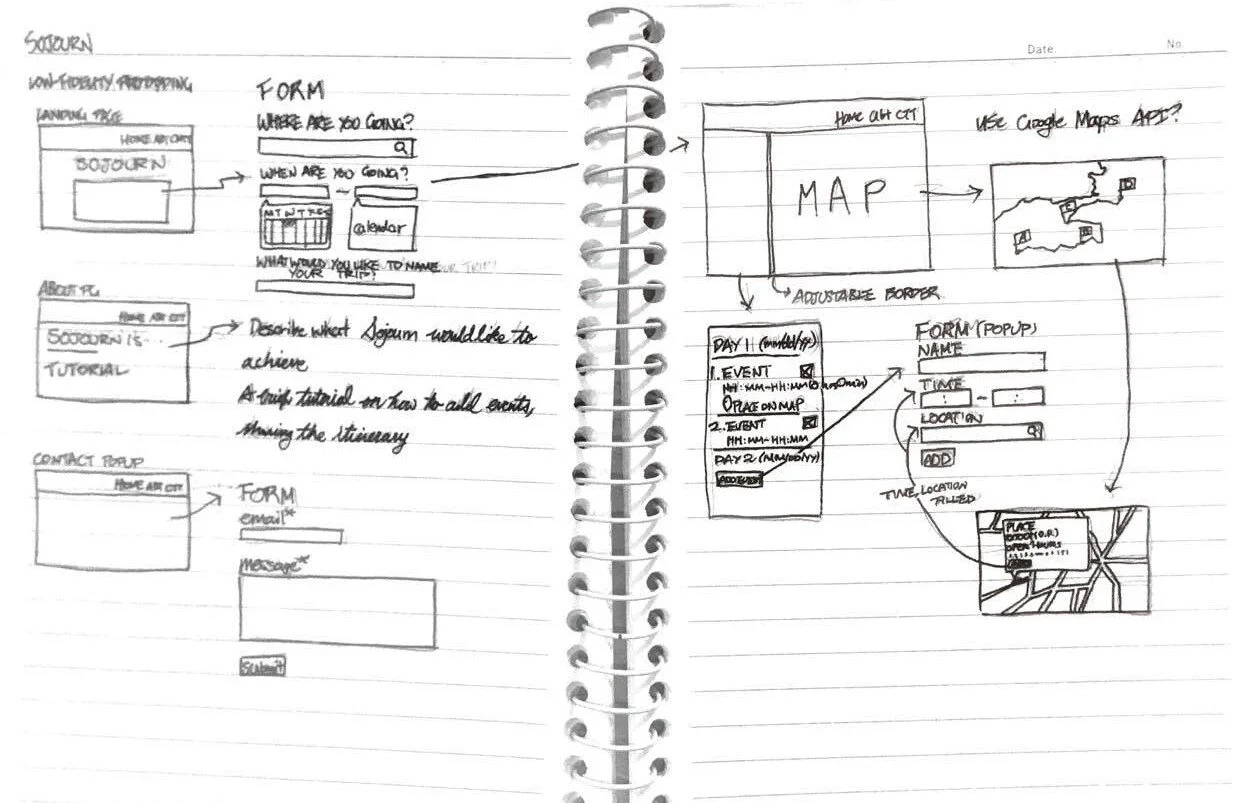 SOJOURN
LOW-FIDELITY PROTOTYPING
LANDING PAGE
HOME ABT CTT
SOJOURN
FORM
WHERE ARE YOU GOING?
WHEN ARE YOU GOING?
~
M T W T F S S
Calendar
WHAT WOULD YOU LIKE TO NAME
YOUR TRIP?
ABOUT PG
HOME ABT CTT
SOJOURN IS
TUTORIAL
Describe what Sojourn would like to
achieve
A brief tutorial on how to add events,
sharing the itinerary
CONTACT POPUP
HOME ABT CTT
FORM
email*
message*
submit
Date
No.
Home abt CTT
MAP
ADJUSTABLE BORDER
use Google Maps API?
A
B
C
D
DAY 1 (mm/dd/yy)
1. EVENT
HH:MM-HH:MM
PLACE ON MAP
2. EVENT
HH:MM-HH:MM
DAY 2 (MM/DD/YY)
ADD EVENT
FORM (POPUP)
NAME
TIME
: ~ :
LOCATION
ADD
TIME, LOCATION
FILLED
PLACE
OPEN HOURS